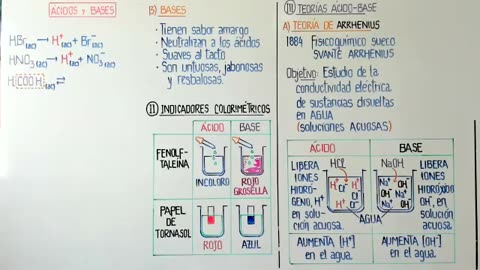 ÁCIDOS y BASES
HBr(ac) → H⁺(ac) + Br⁻(ac)
HNO₃(ac) → H⁺(ac) + NO₃⁻(ac)
HCOOH(ac) ⇄
B) BASES
· Tienen sabor amargo
· Neutralizan a los ácidos
· Suaves al tacto
· Son untuosas, jabonosas
y resbalosas.
II INDICADORES COLORIMÉTRICOS
ÁCIDO
BASE
FENOLF-
TALEÍNA
INCOLORO
ROJO
GROSELLA
PAPEL
DE
TORNASOL
ROJO
AZUL
III TEORÍAS ÁCIDO-BASE
A) TEORÍA DE ARRHENIUS
1884 Fisicoquímico sueco
SVANTE ARRHENIUS
Objetivo: Estudio de la
conductividad eléctrica
de sustancias disueltas
en AGUA
(soluciones acuosas)
ÁCIDO
BASE
LIBERA
IONES
HIDRÓ-
GENO, H⁺
en solu-
ción
acuosa.
HCl
H⁺ H⁺
Cl⁻ Cl⁻
H⁺
AGUA
NaOH
Na⁺ OH⁻
OH⁻ Na⁺
Na⁺ OH⁻
LIBERA
IONES
HIDRÓXIDO
OH⁻, en
solución
acuosa.
AUMENTA [H⁺]
en el agua.
AUMENTA [OH⁻]
en el agua.